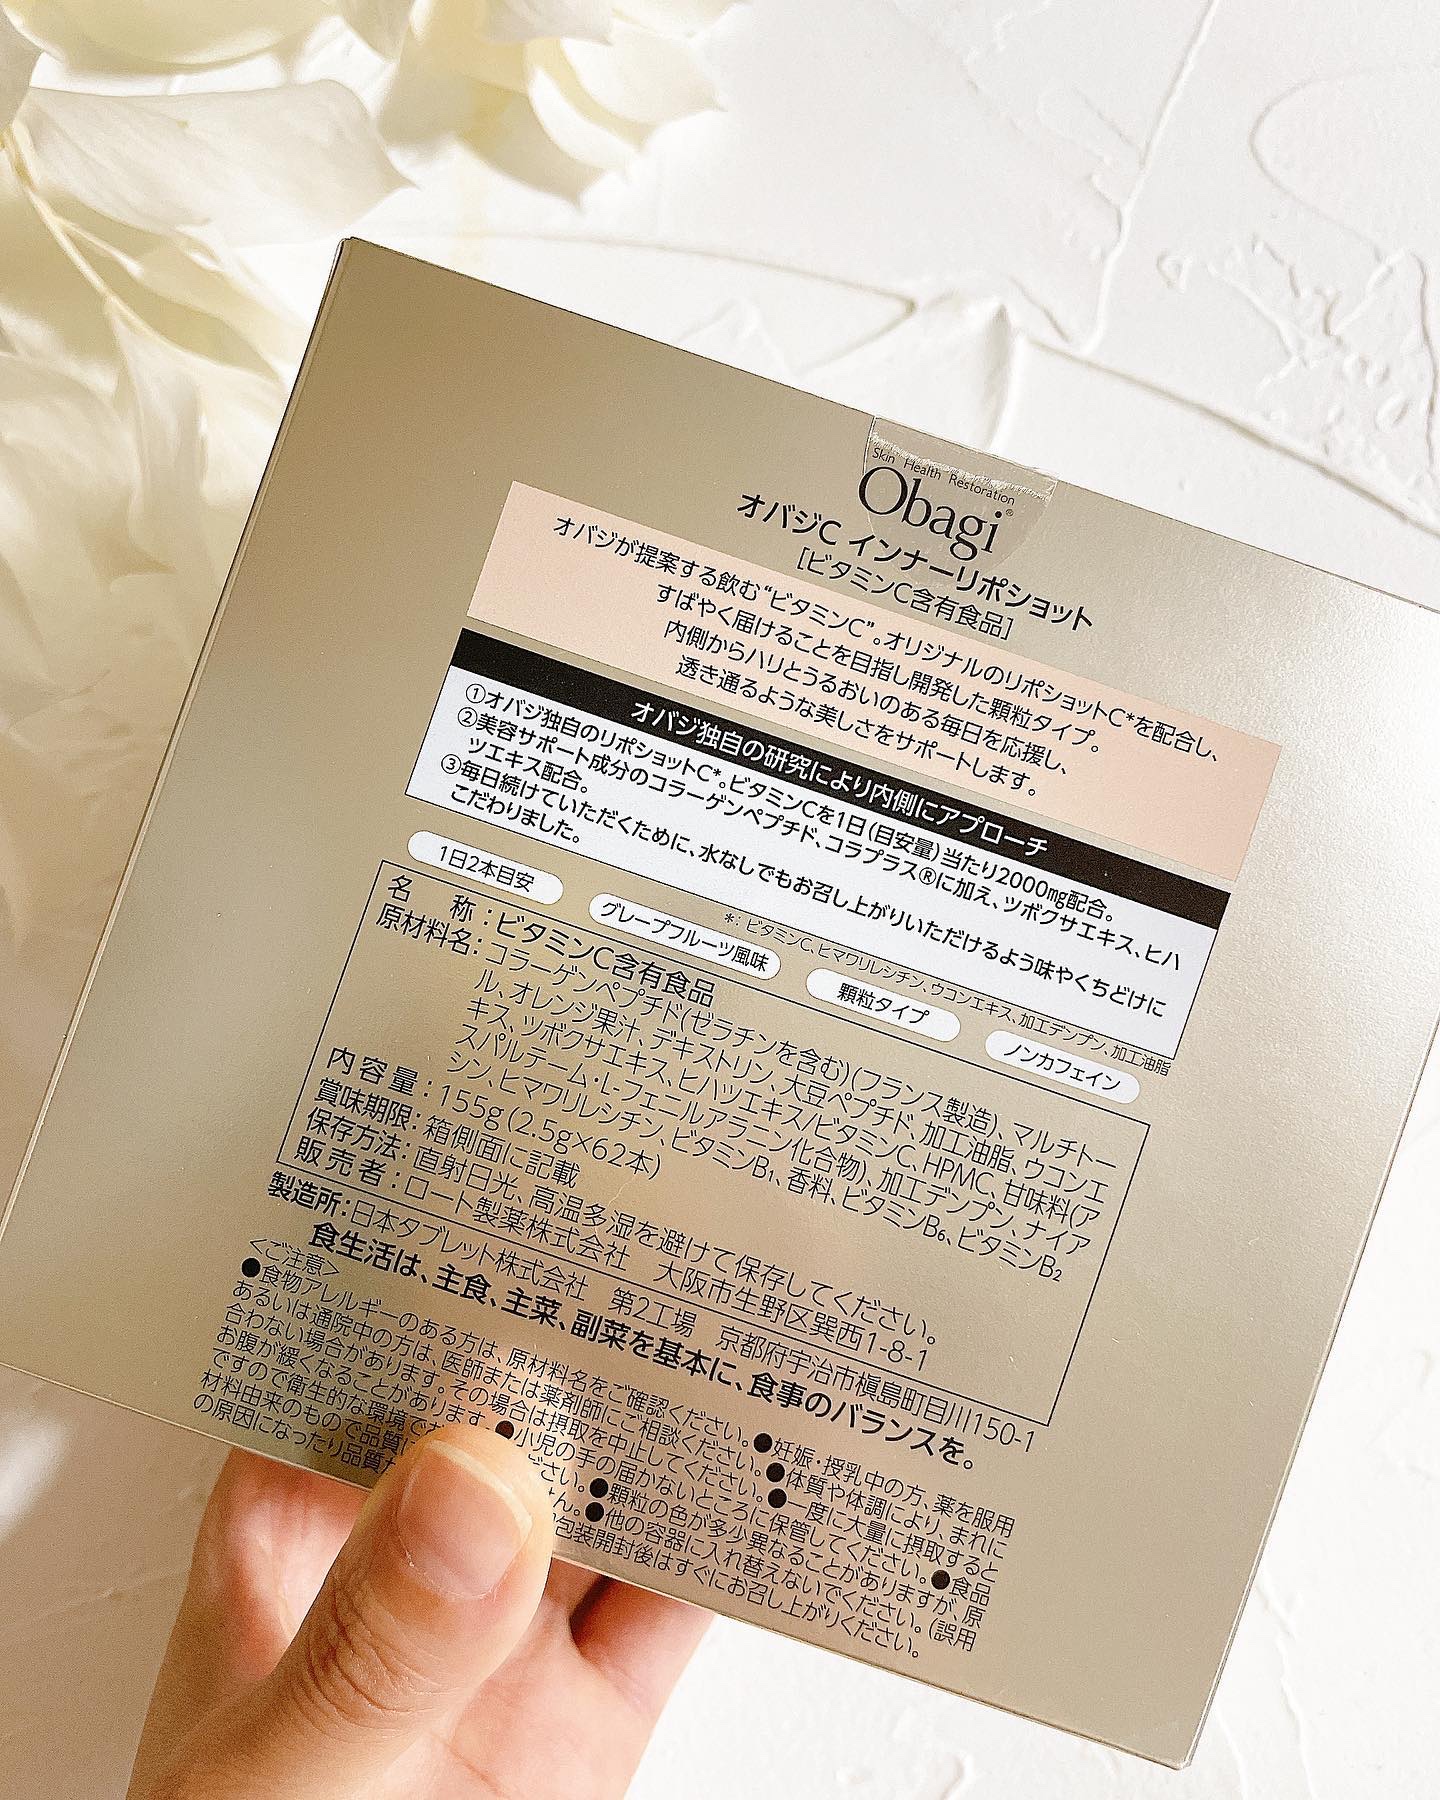 Skin Health Restoration
Obagi®
オバジC インナーリポショット
[ビタミンC含有食品]
オバジが提案する飲む“ビタミンC”。オリジナルのリポショットC*を配合し、
すばやく届けることを目指し開発した顆粒タイプ。
内側からハリとうるおいのある毎日を応援し、
透き通るような美しさをサポートします。
オバジ独自の研究により内側にアプローチ
①オバジ独自のリポショットC*。ビタミンCを1日(目安量)当たり2000mg配合。
②美容サポート成分のコラーゲンペプチド、コラプラス®に加え、ツボクサエキス、ヒハ
ツエキス配合。
③毎日続けていただくために、水なしでもお召し上がりいただけるよう味やくちどけに
こだわりました。
*: ビタミンC、ヒマワリレシチン、ウコンエキス、加工デンプン、加工油脂
1日2本目安
グレープフルーツ風味
顆粒タイプ
ノンカフェイン
名 称:ビタミンC含有食品
原材料名:コラーゲンペプチド(ゼラチンを含む)(フランス製造)、マルチトー
ル、オレンジ果汁、デキストリン、大豆ペプチド、加工油脂、ウコンエ
キス、ツボクサエキス、ヒハツエキス/ビタミンC、HPMC、甘味料(ア
スパルテーム・L-フェニルアラニン化合物)、加工デンプン、ナイア
シン、ヒマワリレシチン、ビタミンB₁、香料、ビタミンB₆、ビタミンB₂
内容量:155g(2.5g×62本)
賞味期限:箱側面に記載
保存方法:直射日光、高温多湿を避けて保存してください。
販売者:ロート製薬株式会社 大阪市生野区巽西1-8-1
製造所:日本タブレット株式会社 第2工場 京都府宇治市槇島町目川150-1
食生活は、主食、主菜、副菜を基本に、食事のバランスを。
<ご注意>
●食物アレルギーのある方は、原材料名をご確認ください。●妊娠・授乳中の方、薬を服用
あるいは通院中の方は、医師または薬剤師にご相談ください。●体質や体調により、まれに
合わない場合があります。その場合は摂取を中止してください。●一度に大量に摂取すると
お腹が緩くなることがあります。●小児の手の届かないところに保管してください。●食品
ですので衛生的な環境で ださい。●顆粒の色が多少異なることがありますが、原
材料由来のもので品質に せん。●他の容器に入れ替えないでください。(誤用
の原因になったり品質が 包装開封後はすぐにお召し上がりください。